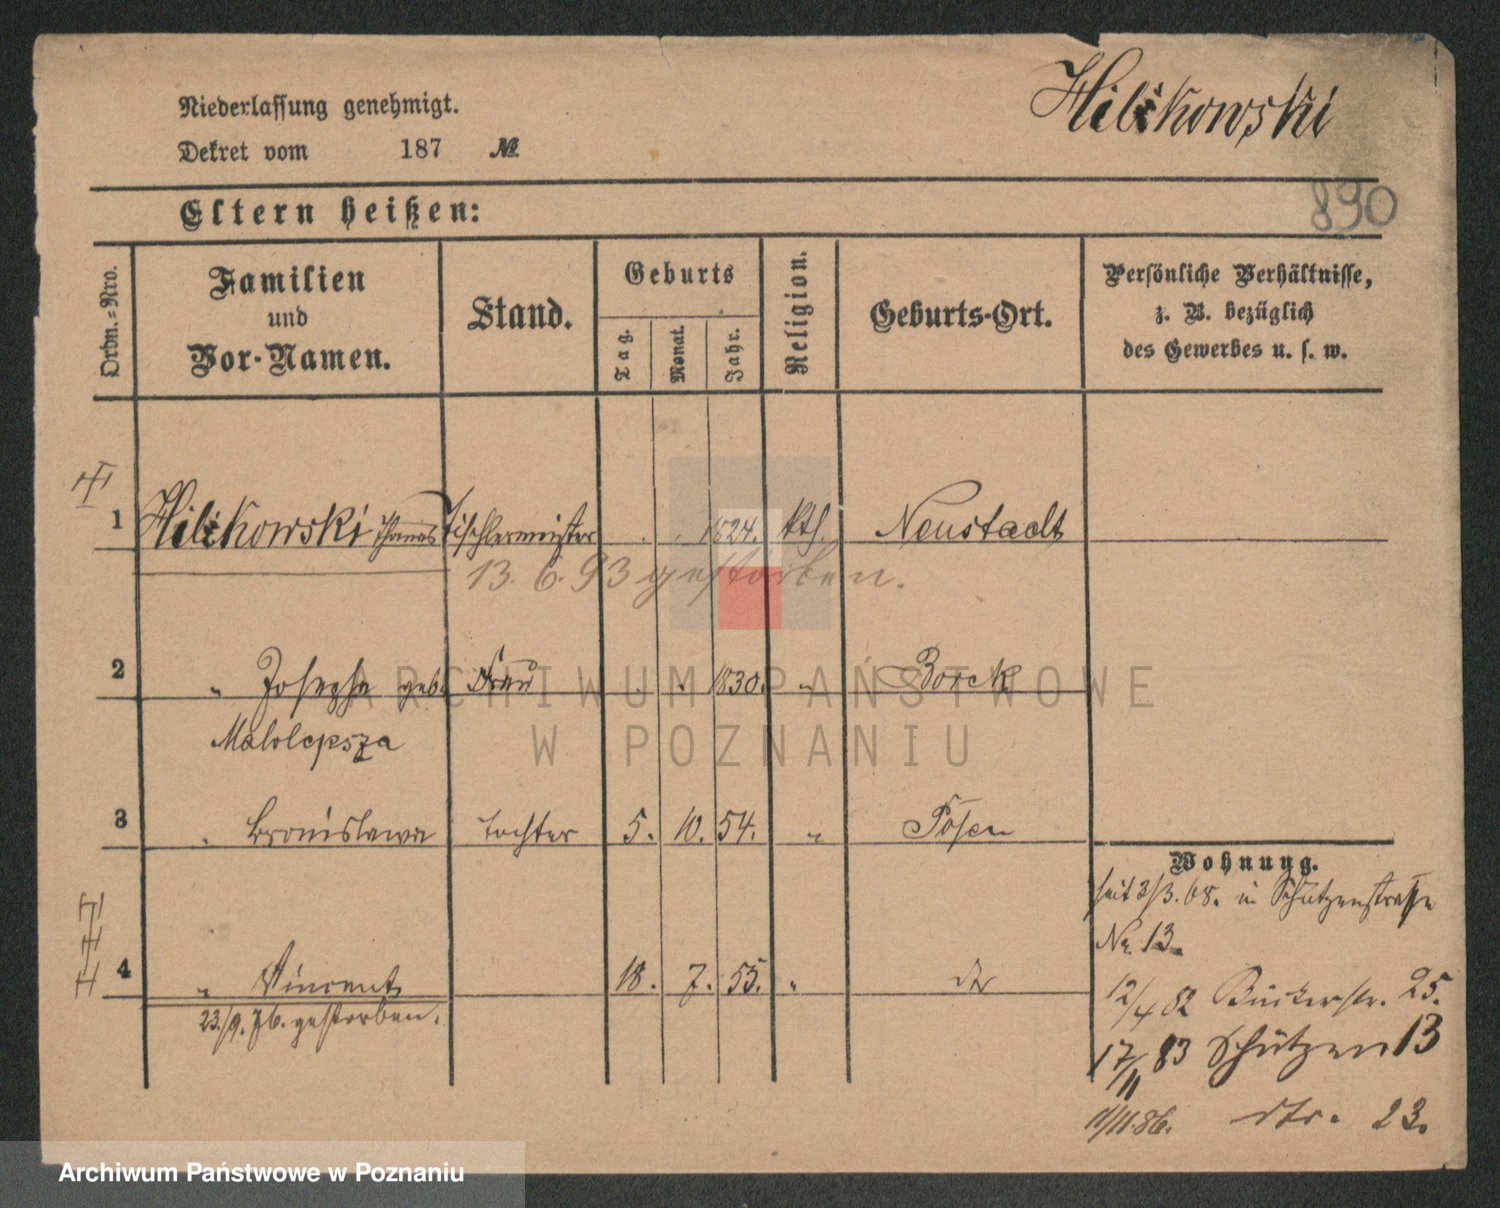 Niederlassung genehmigt.
Dekret vom 187 №
Hilikowski
890
Eltern heißen:
Ordn.=Nro.
Familien
und
Vor-Namen.
Stand.
Geburts
Tag.
Monat.
Jahr.
Religion.
Geburts-Ort.
Persönliche Verhältnisse,
z. B. bezüglich
des Gewerbes u. s. w.
1 Hilikowski Thomas Tischlermeister 1824. kth. Neustadt
13. 6. 93 gestorben.
2 " Josepha geb. Frau 1830. " Borek
Malolepsza
3 " Bronislawa Tochter 5. 10. 54. " Posen
4 " Vincent 18. 7. 55. "
23./9. 76. gestorben.
Wohnung.
seit 3/3. 68. in Schützenstrasse
No. 13.
12/4 82 Bäckerstr. 25.
17/11 83 Schützen 13
11/11. 86. dto. 23.
ARCHIWUM PAŃSTWOWE
W POZNANIU
Archiwum Państwowe w Poznaniu